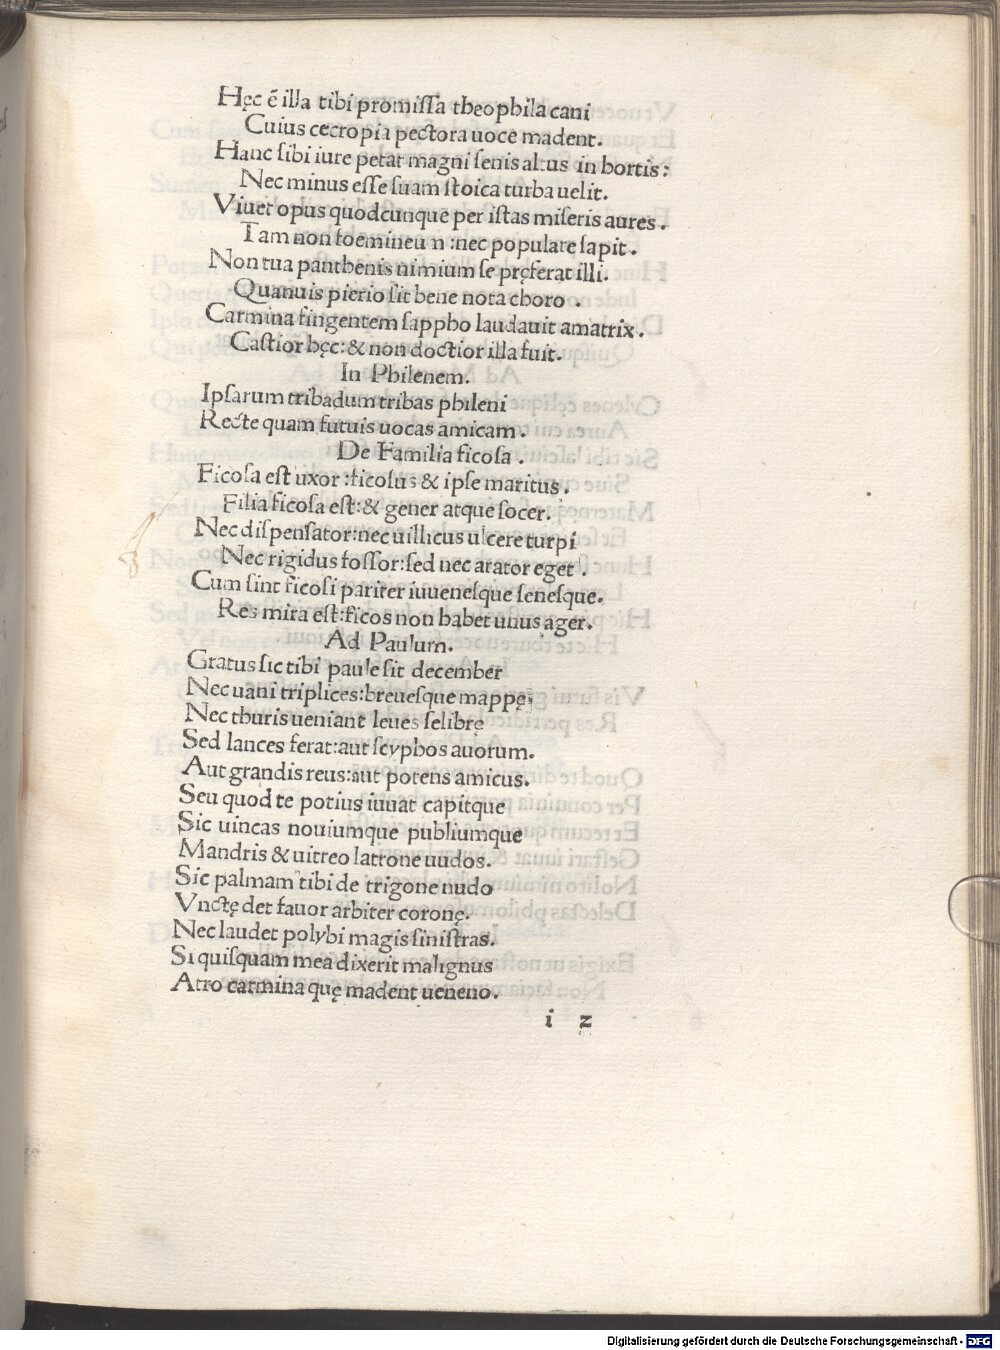 Hęc ē illa tibi promiſſa theophila cani
Cuius cecropia pectora uoce madent.
Hanc ſibi iure petat magni ſenis altus in hortis:
Nec minus eſſe ſuam ſtoica turba uelit.
Viuet opus quodcunque per iſtas miſeris aures.
Tam non foemineum :nec populare ſapit.
Non tua panthenis nimium ſe pręferat illi.
Quanuis pierio ſit bene nota choro .
Carmina fingentem ſappho laudauit amatrix.
Caſtior hęc:& non doctior illa fuit.
In Philenem.
Ipſarum tribadum tribas phileni
Recte quam futuis uocas amicam.
De Familia ficoſa .
Ficoſa eſt uxor :ficoſus & ipſe maritus.
Filia ficoſa eſt:& gener atque ſocer.
Nec diſpenſator:nec uillicus ulcere turpi
Nec rigidus foſſor:ſed nec arator eget .
Cum ſint ficoſi pariter iuueneſque ſeneſque.
Res mira eſt:ficos non habet unus ager.
Ad Paulum.
Gratus ſic tibi paule ſit december
Nec uani triplices:breueſque mappę:
Nec thuris ueniant leues ſelibrę
Sed lances ferat:aut ſcyphos auorum.
Aut grandis reus:aut potens amicus.
Seu quod te potius iuuat capitque
Sic uincas nouiumque publiumque
Mandris & uitreo latrone uudos.
Sic palmam tibi de trigone nudo
Vnctę det fauor arbiter coronę.
Nec laudet polybi magis ſiniſtras.
Si quiſquam mea dixerit malignus
Atro carmina quę madent ueneno.
i z
Digitalisierung gefördert durch die Deutsche Forschungsgemeinschaft - DFG